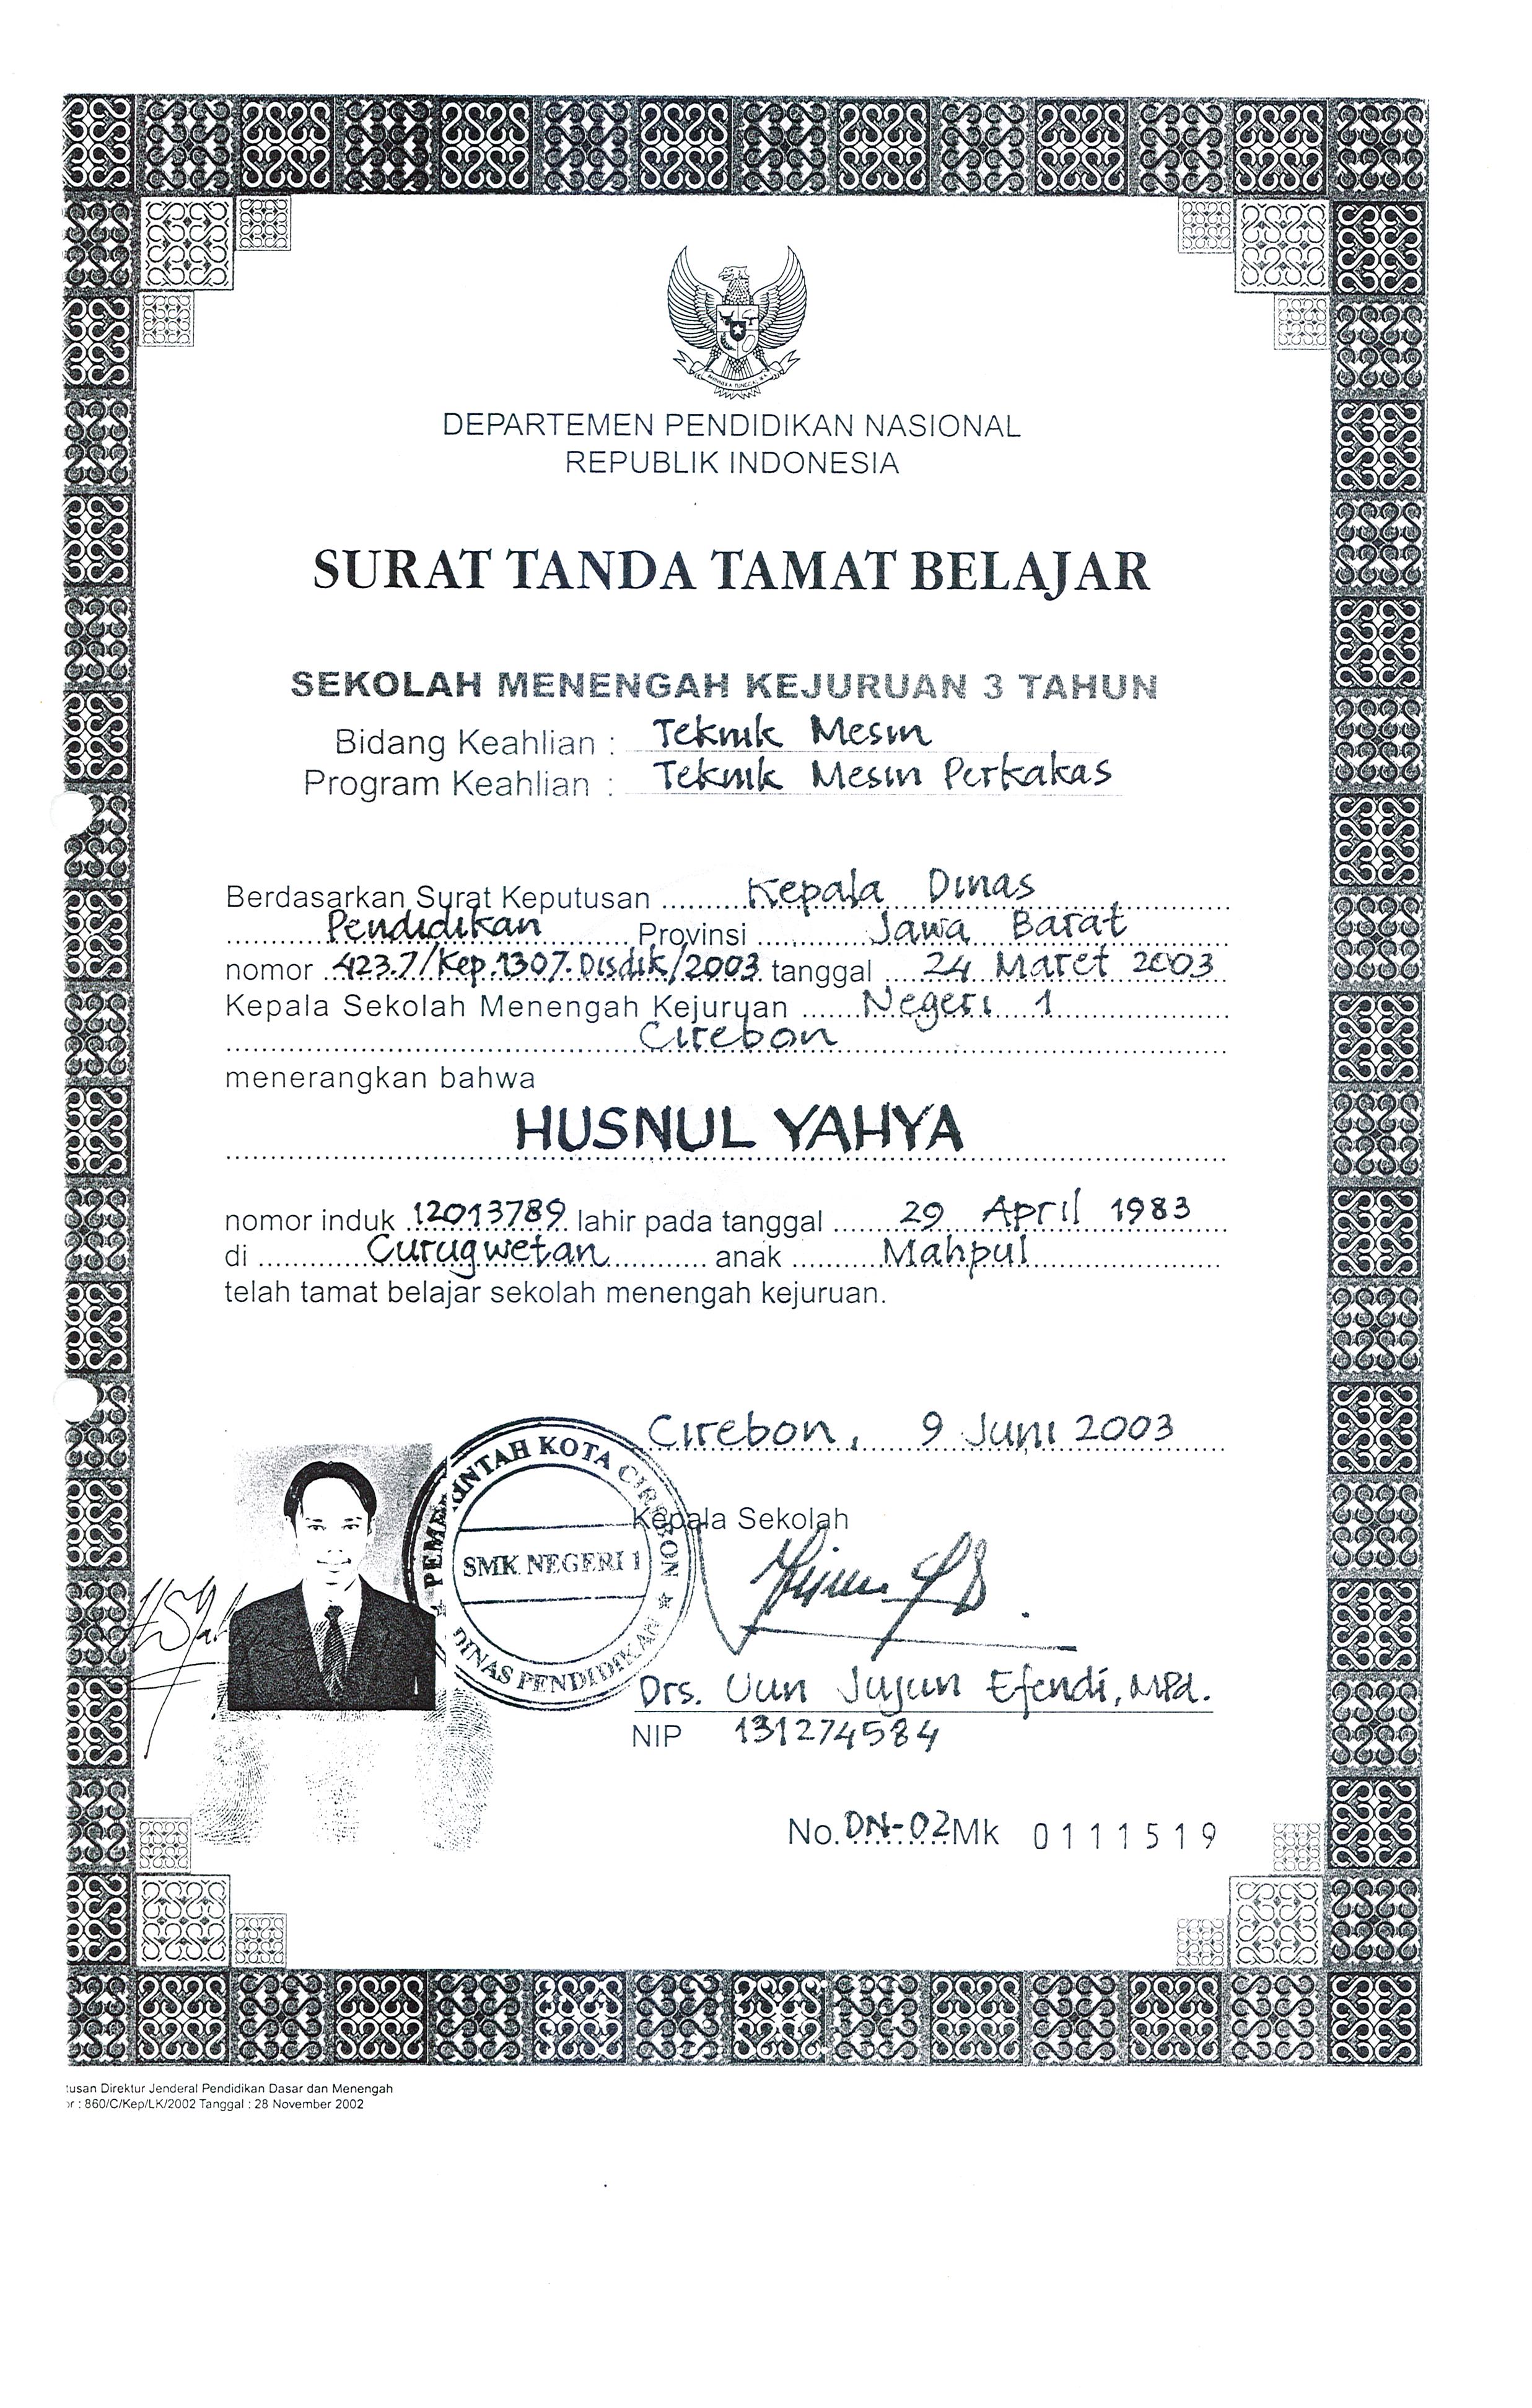 DEPARTEMEN PENDIDIKAN NASIONAL
REPUBLIK INDONESIA
SURAT TANDA TAMAT BELAJAR
SEKOLAH MENENGAH KEJURUAN 3 TAHUN
Bidang Keahlian : Teknik Mesin
Program Keahlian : Teknik Mesin Perkakas
Berdasarkan Surat Keputusan Kepala Dinas
Pendidikan Provinsi Jawa Barat
nomor 423.7/Kep.1307.Disdik/2003 tanggal 24 Maret 2003
Kepala Sekolah Menengah Kejuruan Negeri 1
Cirebon
menerangkan bahwa
HUSNUL YAHYA
nomor induk 12013789 lahir pada tanggal 29 April 1983
di Curugwetan anak Mahpul
telah tamat belajar sekolah menengah kejuruan.
Cirebon, 9 Juni 2003
PEMERINTAH KOTA CIREBON
SMK NEGERI 1
DINAS PENDIDIKAN
Kepala Sekolah
Drs. Uun Jujun Efendi, MPd.
NIP 131274584
No. DN-02 Mk 0111519
tusan Direktur Jenderal Pendidikan Dasar dan Menengah
or : 860/C/Kep/LK/2002 Tanggal : 28 November 2002